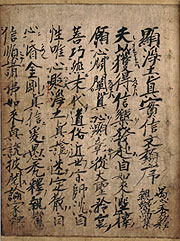 顯淨土真實信文類序
愚禿釋親鸞集
夫以獲得信樂發起自如來選擇
願心開闡真心顯彰從大聖矜哀
善巧然末代道俗近世宗師沈自
性唯心貶淨土真證迷定散自
心昏金剛真信爰愚禿釋親鸞
信順諸佛如來真說披閱論家